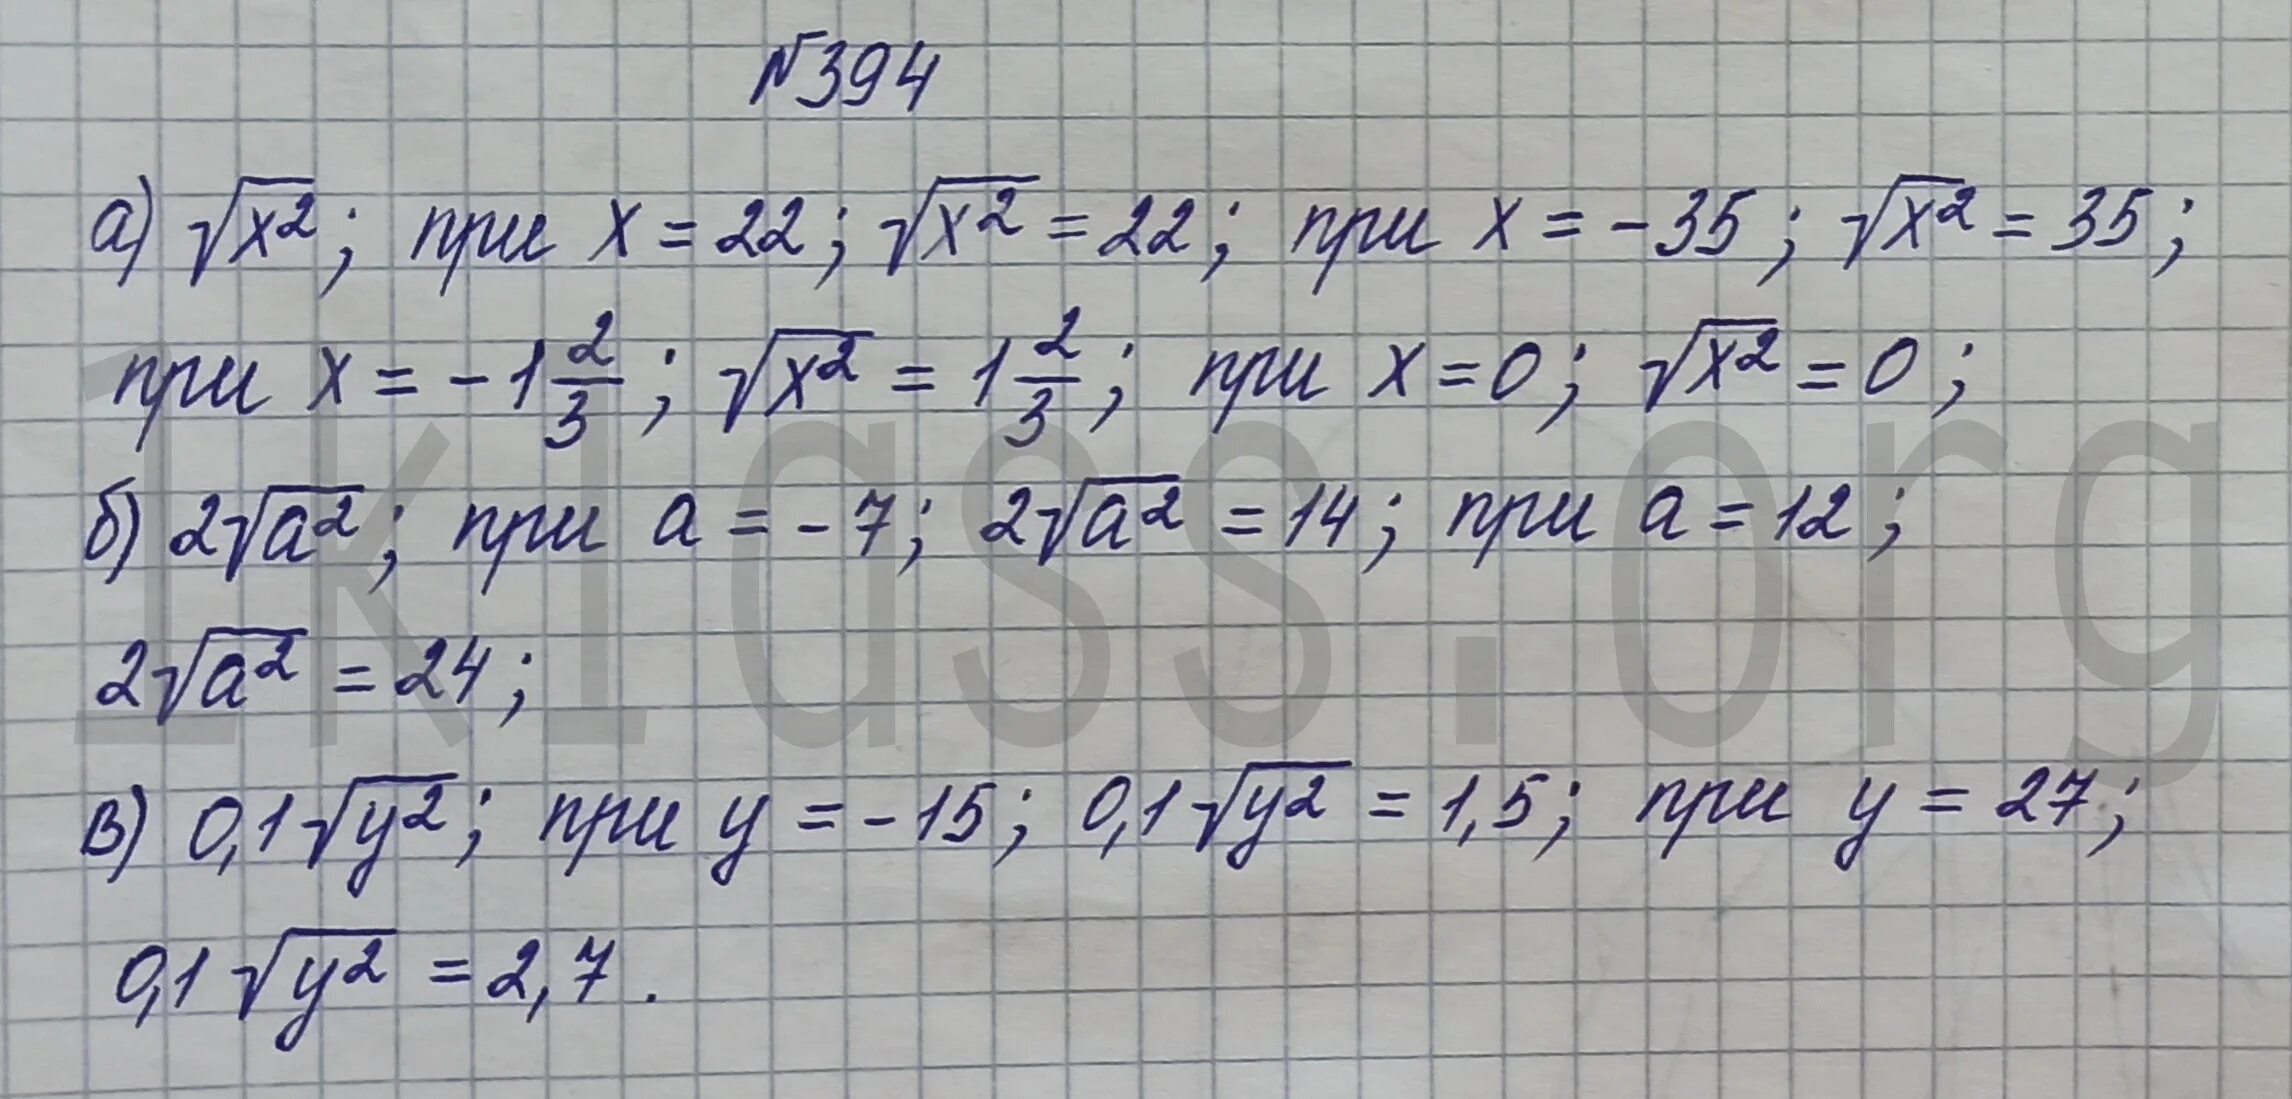 №394
а) √x²; при x = 22; √x² = 22; при x = -35; √x² = 35;
при x = -1 2/3; √x² = 1 2/3; при x = 0; √x² = 0;
б) 2√a²; при a = -7; 2√a² = 14; при a = 12;
2√a² = 24;
в) 0,1√y²; при y = -15; 0,1√y² = 1,5; при y = 27;
0,1√y² = 2,7.
1klass.org